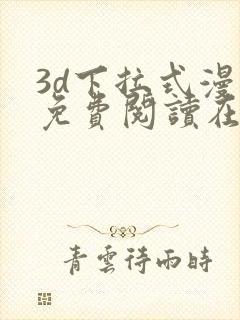 3d下拉式漫
免費閱讀在
青雲待雨時